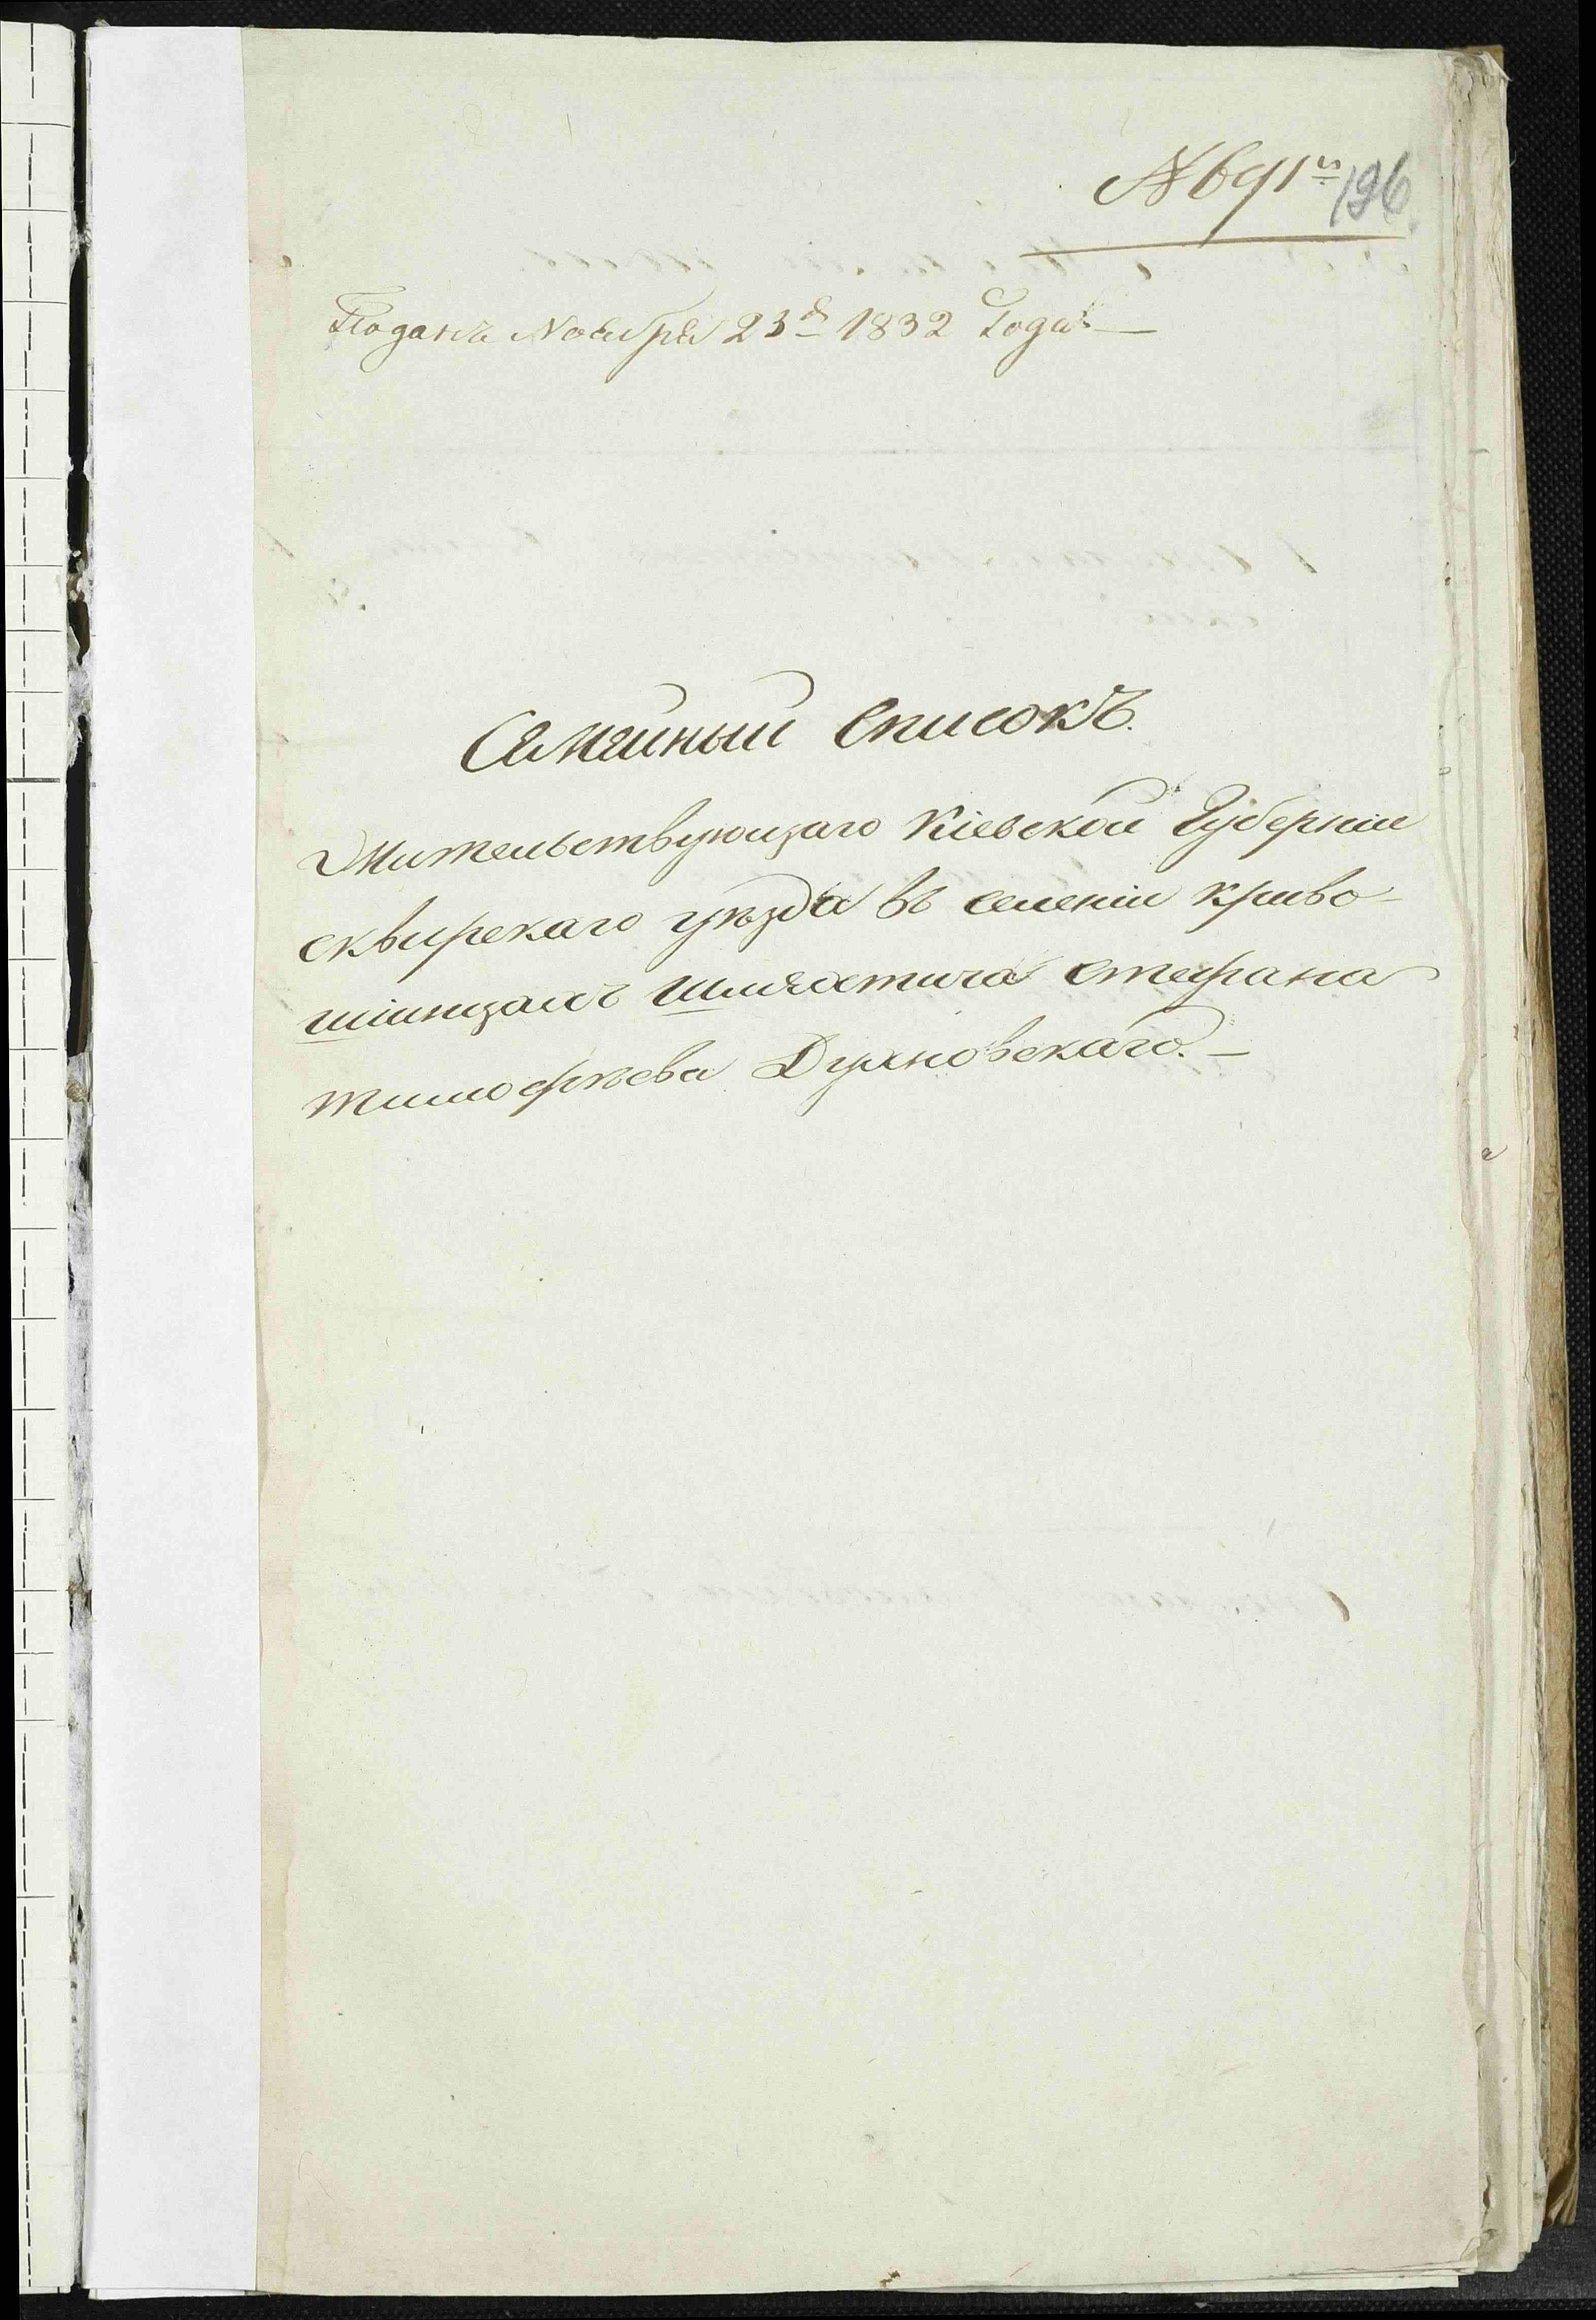 № 691й
196
Поданъ Ноября 23д 1832 Года
Семейный Списокъ.
Жительствующаго Кіевской Губерніи
сквирскаго уѣзда въ селеніи криво-
шіинцахъ шляхтича стефана
тимофѣева Дуяновскаго.